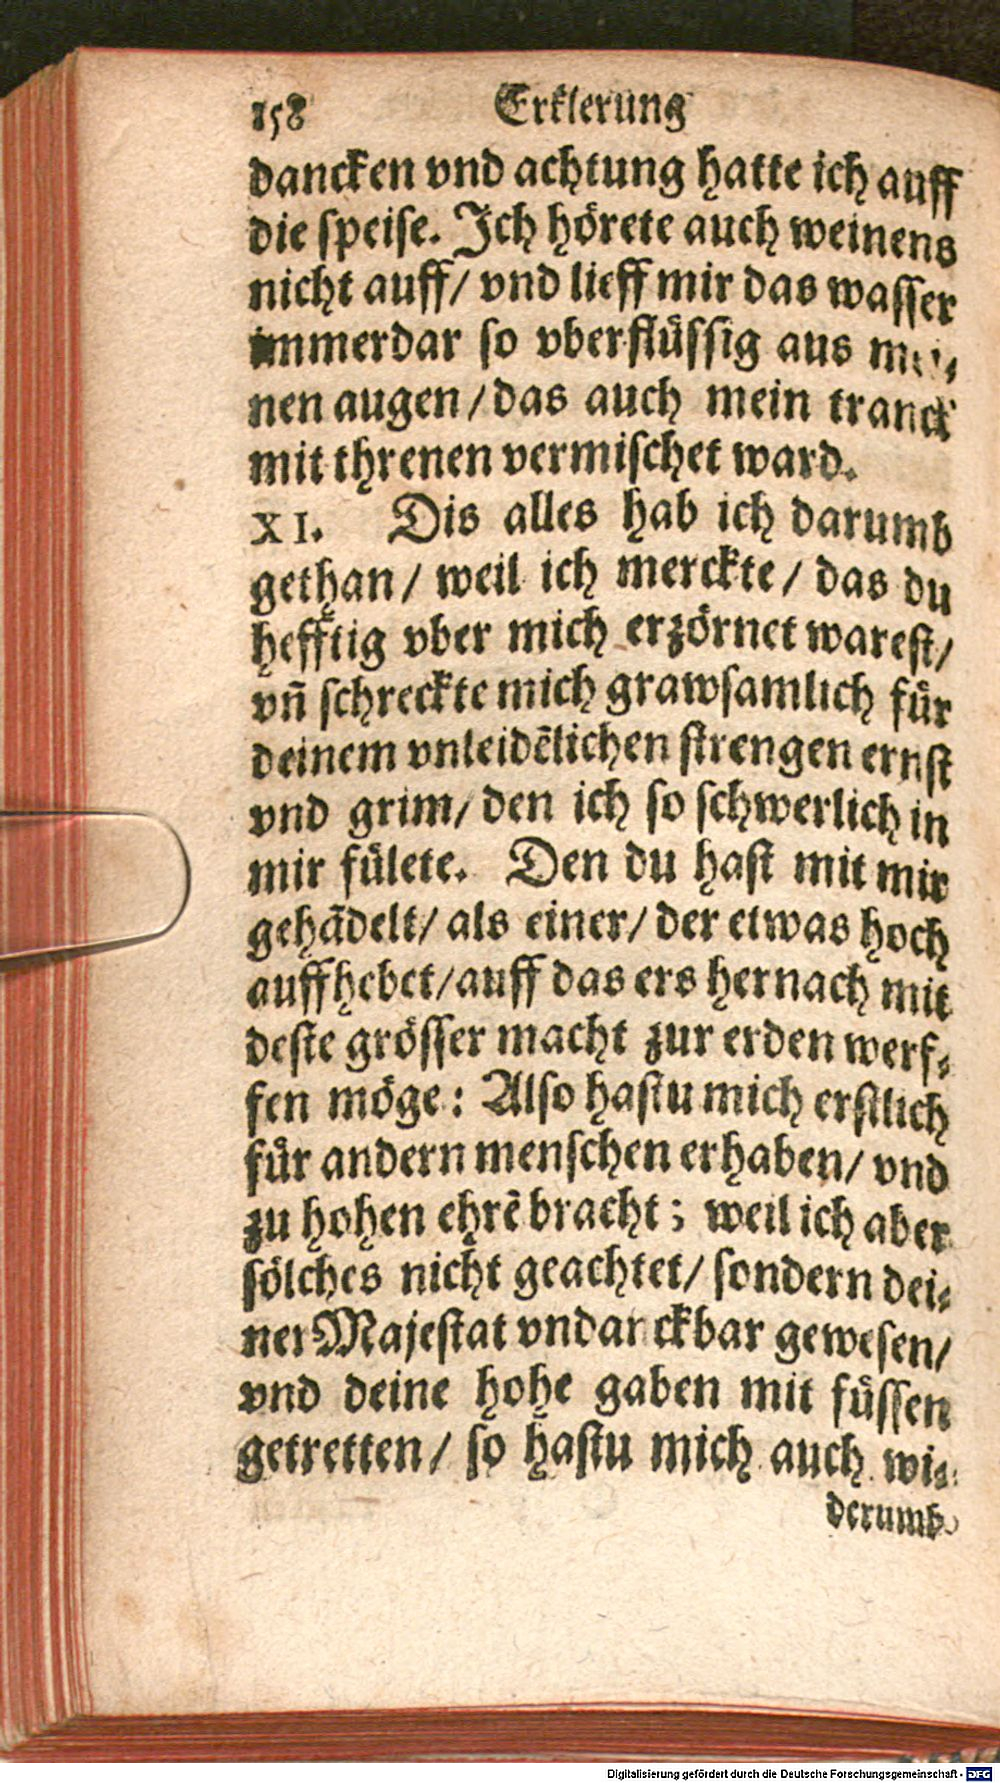 158 Erklerung
dancken vnd achtung hatte ich auff
die speise. Ich hörete auch weinens
nicht auff/ vnd lieff mir das wasser
immerdar so vberflüssig aus mei⸗
nen augen/ das auch mein tranck
mit threnen vermischet ward.
XI. Dis alles hab ich darumb
gethan/ weil ich merckte/ das du
hefftig vber mich erzörnet warest/
vn̄ schreckte mich grawsamlich für
deinem vnleidēlichen strengen ernst
vnd grim/ den ich so schwerlich in
mir fülete. Den du hast mit mir
gehādelt/ als einer/ der etwas hoch
auffhebet/ auff das ers hernach mit
deste grösser macht zur erden werf⸗
fen möge: Also hastu mich erstlich
für andern menschen erhaben/ vnd
zu hohen ehrē bracht; weil ich aber
sölches nicht geachtet/ sondern dei⸗
ner Majestat vndanckbar gewesen/
vnd deine hohe gaben mit füssen
getretten/ so hastu mich auch wi⸗
derumb
Digitalisierung gefördert durch die Deutsche Forschungsgemeinschaft - DFG